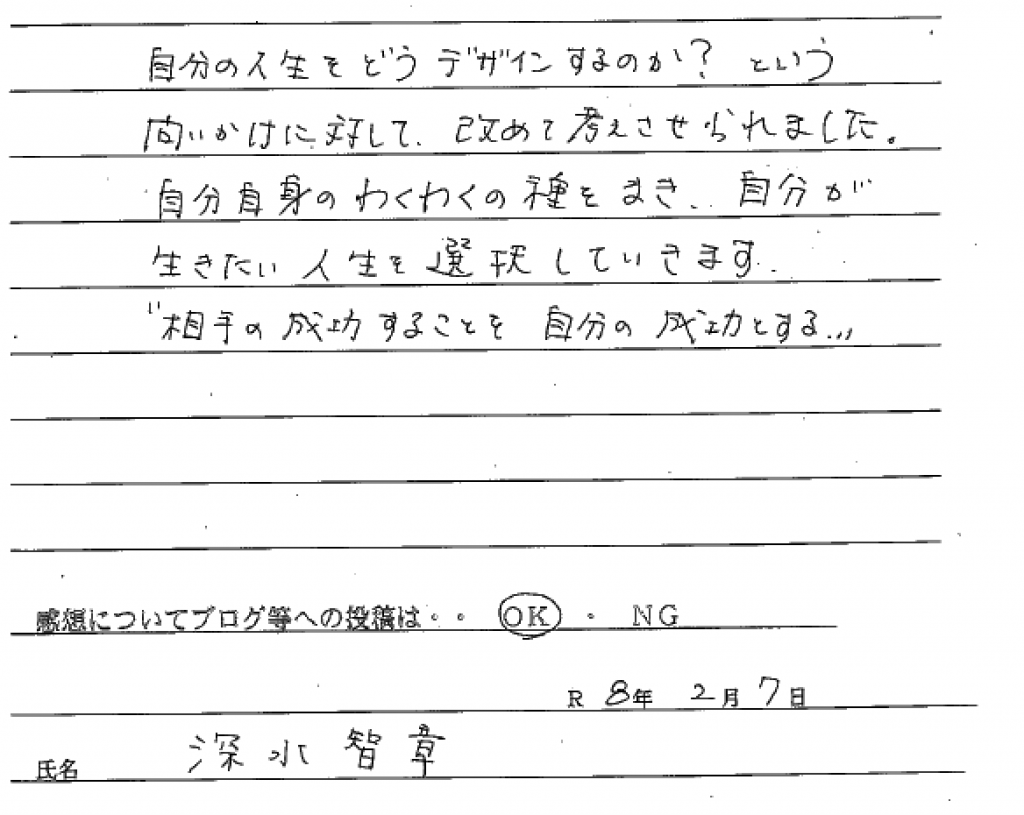 自分の人生をどうデザインするのか? という
問いかけに対して、改めて考えさせられました。
自分自身のわくわくの種をまき、自分が
生きたい人生を選択していきます.
"相手の成功することを 自分の成功とする..,,
感想についてブログ等への投稿は・・ OK ・ NG
R 8年 2月 7日
氏名 深水智章